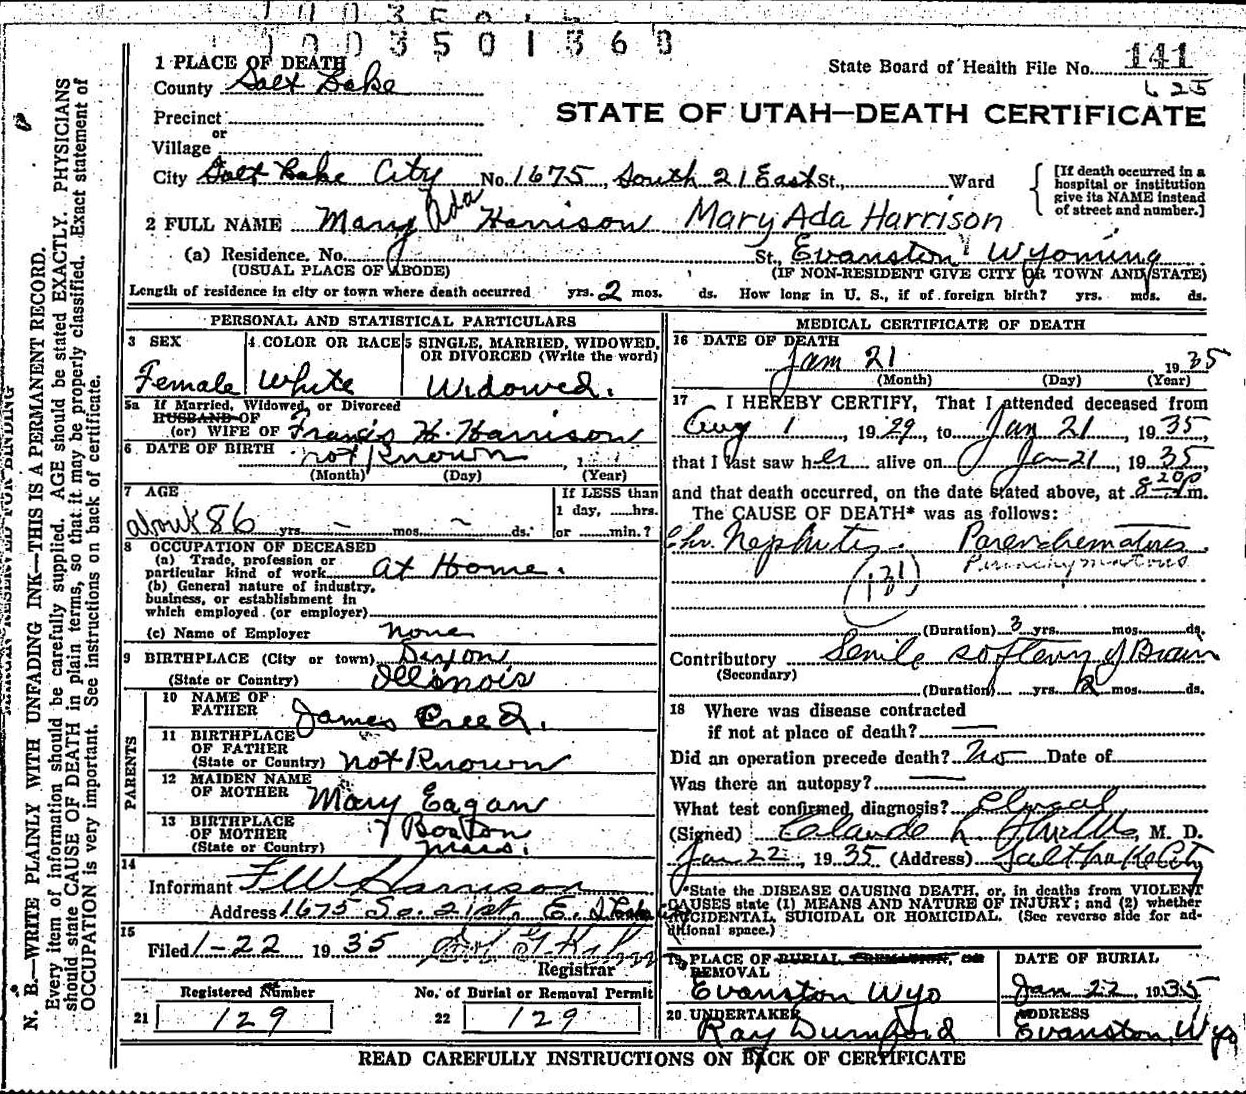 1003501368
141
State Board of Health File No.
625
STATE OF UTAH—DEATH CERTIFICATE
1 PLACE OF DEATH
County Salt Lake
Precinct
or
Village
City Salt Lake City No. 1675, South 21 East St., Ward
[If death occurred in a hospital or institution give its NAME instead of street and number.]
2 FULL NAME Mary Ada Harrison Mary Ada Harrison
(a) Residence. No. St., Evanston Wyoming
(USUAL PLACE OF ABODE) (IF NON-RESIDENT GIVE CITY OR TOWN AND STATE)
Length of residence in city or town where death occurred yrs. 2 mos. ds. How long in U. S., if of foreign birth? yrs. mos. ds.
PERSONAL AND STATISTICAL PARTICULARS
3 SEX
Female
4 COLOR OR RACE
White
5 SINGLE, MARRIED, WIDOWED, OR DIVORCED (Write the word)
Widowed.
5a If Married, Widowed, or Divorced
HUSBAND OF
(or) WIFE OF Francis H. Harrison
6 DATE OF BIRTH not Known, 1
(Month) (Day) (Year)
7 AGE
about 86 yrs. – mos. – ds.
If LESS than
1 day, hrs.
or min.?
8 OCCUPATION OF DECEASED
(a) Trade, profession or
particular kind of work at Home.
(b) General nature of industry,
business, or establishment in
which employed (or employer)
(c) Name of Employer none
9 BIRTHPLACE (City or town) Dixon,
(State or Country) Illinois
PARENTS
10 NAME OF
FATHER James Creed.
11 BIRTHPLACE
OF FATHER
(State or Country) not Known
12 MAIDEN NAME
OF MOTHER Mary Eagan
13 BIRTHPLACE
OF MOTHER Boston
(State or Country) Mass.
14
Informant F W Harrison
Address 1675 So. 21st. E. S Lake
15
Filed 1-22 1935
Registrar
Registered Number
21 129
No. of Burial or Removal Permit
22 129
MEDICAL CERTIFICATE OF DEATH
16 DATE OF DEATH
Jan 21 1935
(Month) (Day) (Year)
17 I HEREBY CERTIFY, That I attended deceased from
Aug 1, 1929, to Jan 21, 1935,
that I last saw her alive on Jan 21, 1935,
and that death occurred, on the date stated above, at 8 20 p m.
The CAUSE OF DEATH* was as follows:
Chr. Nephritis. Parenchematous
Parenchymatous
(131)
(Duration) 3 yrs. mos. ds.
Contributory Senile softeng of Brain
(Secondary)
(Duration) yrs. 2 mos. ds.
18 Where was disease contracted
if not at place of death? —
Did an operation precede death? No Date of
Was there an autopsy? —
What test confirmed diagnosis?
(Signed) Claude L, M. D.
Jan 22, 1935 (Address) Salt Lake City
*State the DISEASE CAUSING DEATH, or, in deaths from VIOLENT
CAUSES state (1) MEANS AND NATURE OF INJURY; and (2) whether
ACCIDENTAL, SUICIDAL OR HOMICIDAL. (See reverse side for ad-
ditional space.)
19 PLACE OF BURIAL, CREMATION, OR
REMOVAL
Evanston Wyo
DATE OF BURIAL
Jan 22, 1935
20 UNDERTAKER
Ray Durnford
ADDRESS
Evanston, Wyo
READ CAREFULLY INSTRUCTIONS ON BACK OF CERTIFICATE
MARGIN RESERVED FOR BINDING
N. B.—WRITE PLAINLY WITH UNFADING INK—THIS IS A PERMANENT RECORD.
Every item of information should be carefully supplied. AGE should be stated EXACTLY. PHYSICIANS
should state CAUSE OF DEATH in plain terms, so that it may be properly classified. Exact statement of
OCCUPATION is very important. See instructions on back of certificate.